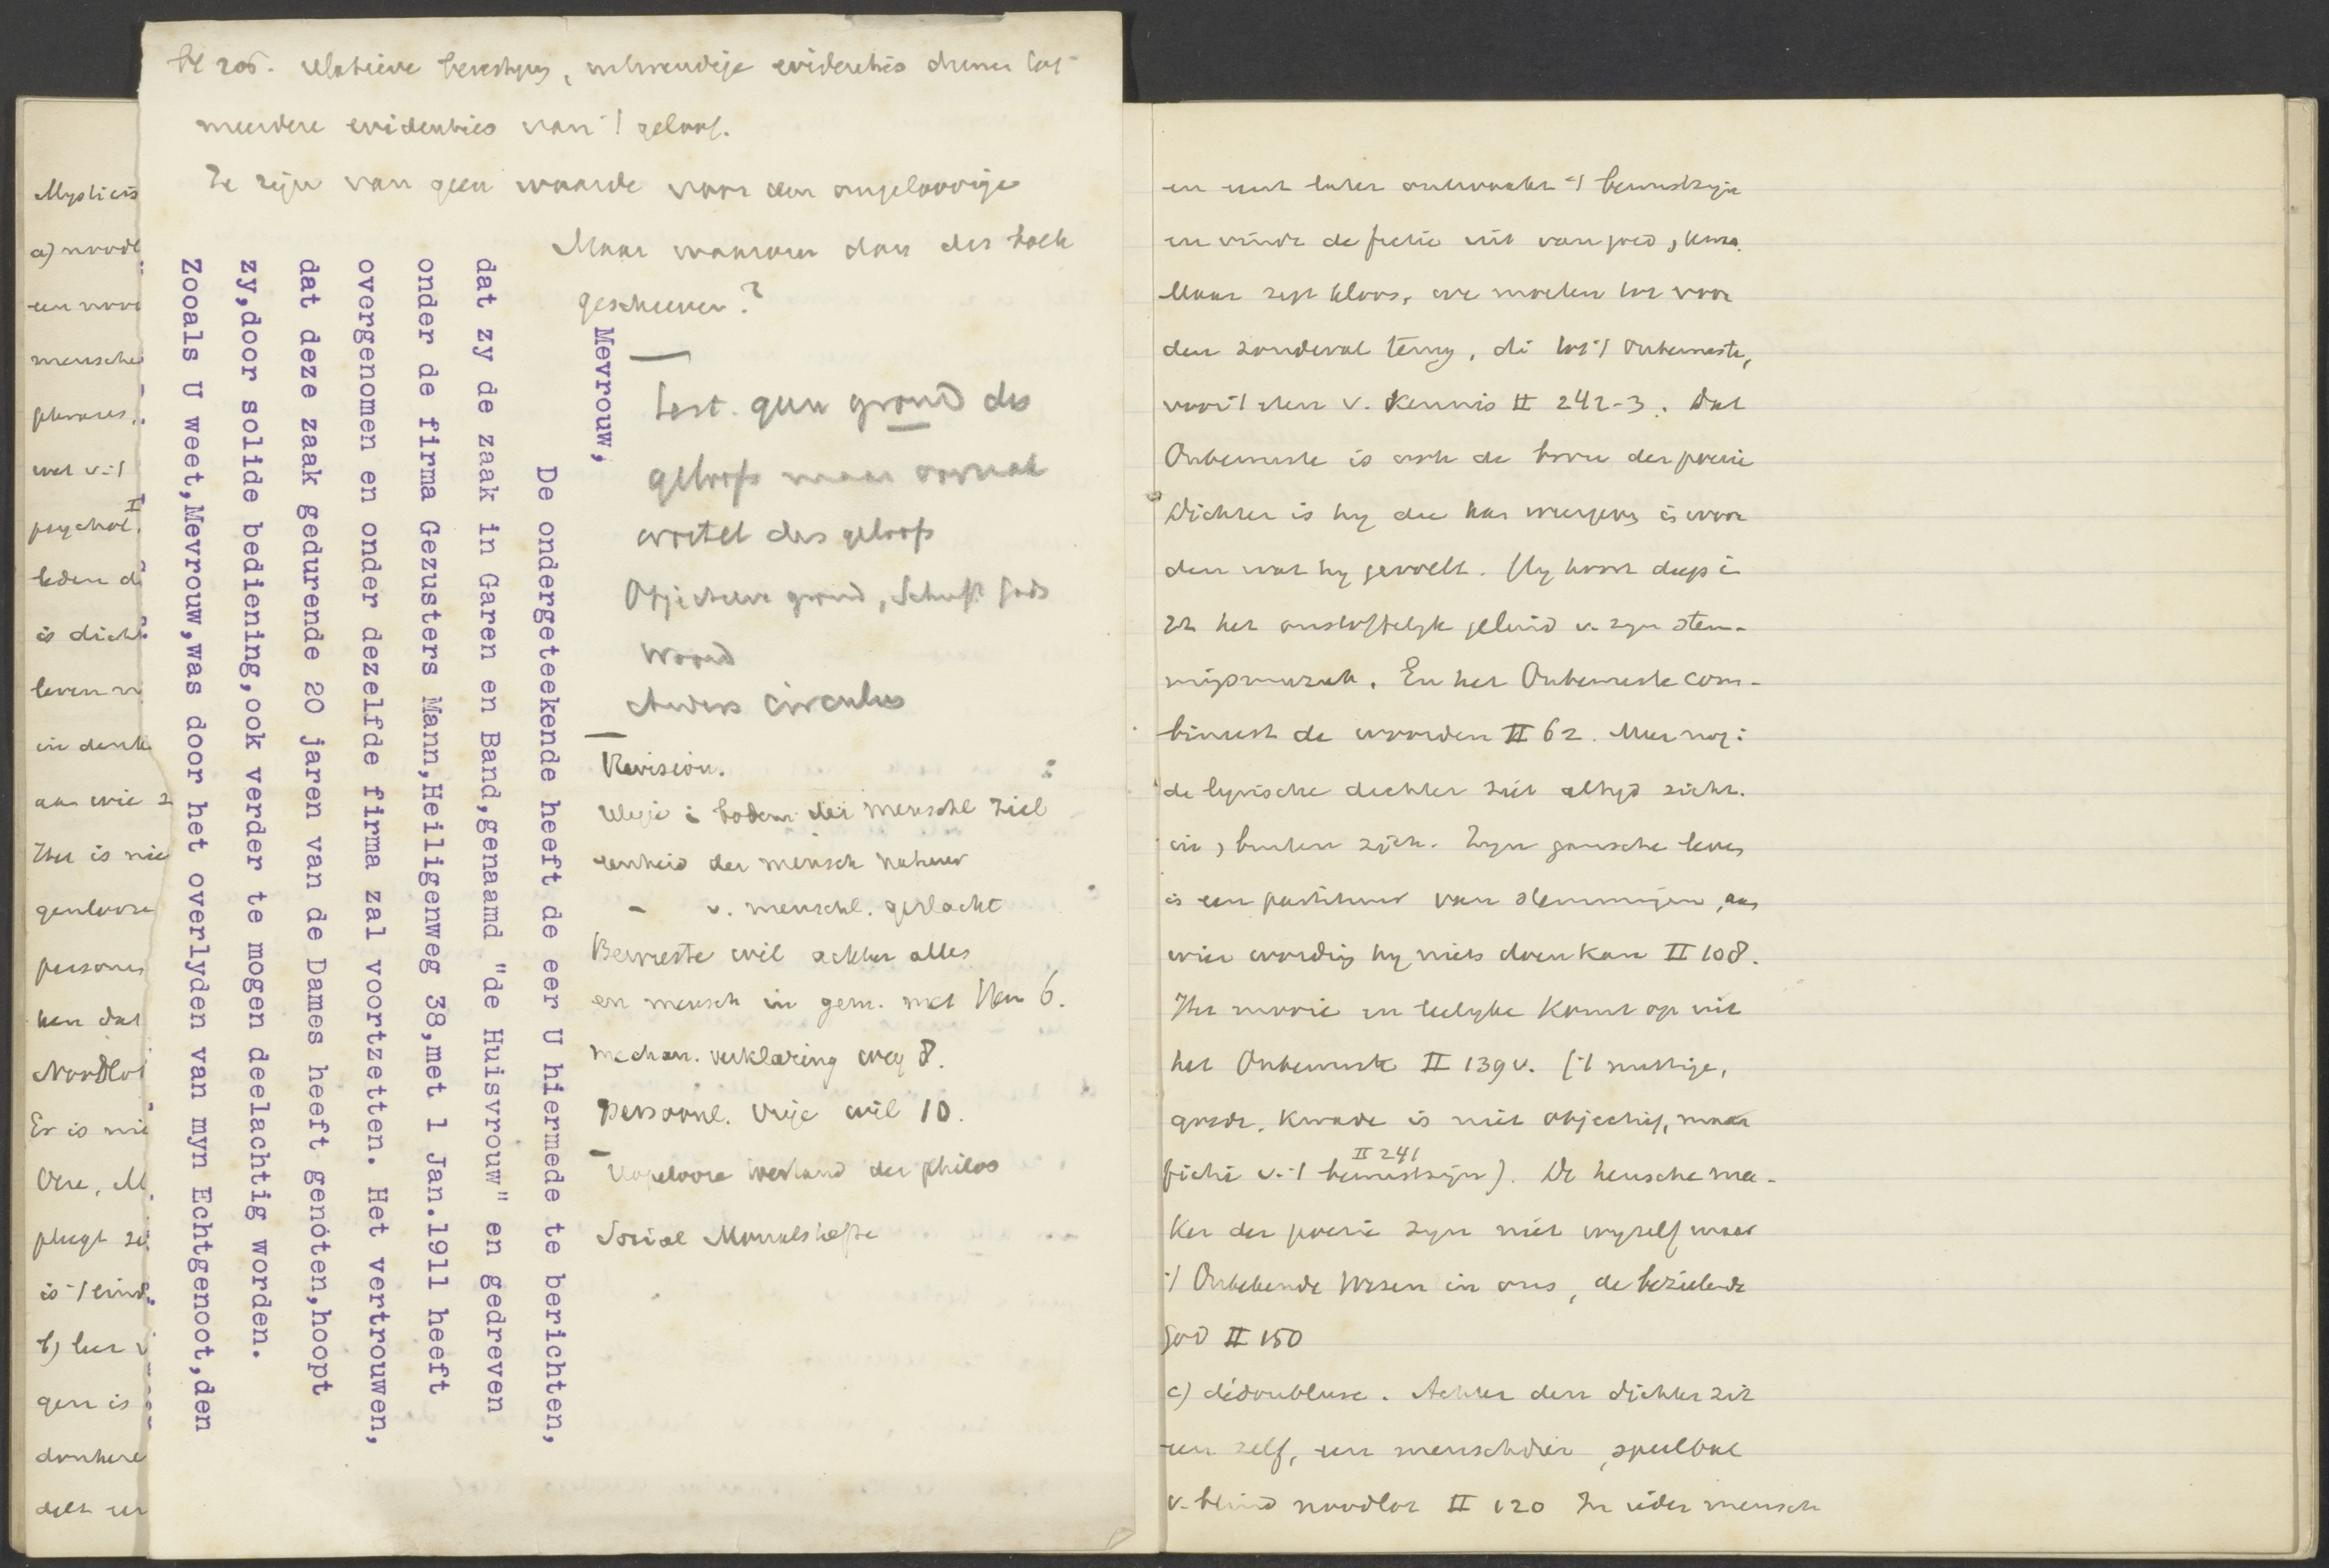 meerdere evidenties van 't geloof.
Ze zijn van geen waarde voor den ongeloovige
Maar waarom dan des toch
geschreven?
Test. geen grond des
geloofs maar
wortel des geloofs
Objectieve grond, Schrift Gods
Woord
circulus
Revision.
Religie i bodem der menschl ziel
eenheid der mensch natuur
- v. menschl. geslacht
Bewuste wil achter alles
en mensch in gem. met Hem 6.
mechan. verklaring weg 8.
persoonl. vrije wil 10.
der philos
Social
Mevrouw,
De ondergeteekende heeft de eer U hiermede te berichten,
dat zy de zaak in Garen en Band,genaamd "de Huisvrouw" en gedreven
onder de firma Gezusters Mann,Heiligenweg 38,met 1 Jan.1911 heeft
overgenomen en onder dezelfde firma zal voortzetten. Het vertrouwen,
dat deze zaak gedurende 20 jaren van de Dames heeft genóten,hoopt
zy,door solide bediening,ook verder te mogen deelachtig worden.
Zooals U weet,Mevrouw,was door het overlyden van myn Echtgenoot,den
Mysticis
a) noodl
een nood
mensche
wet v. 't
psychol.
leden d
is dicht
leven
in denk
aan wie
Het is nie
persones
hen dat
Noodlot
Er is nie
pleegt
is 't eind
b) leer v
gen is
donkere
en eerst later ontwaakt 't bewustzijn
en vindt de fictie uit van goed, kwa.
Maar zegt Kloos, we moeten tot voor
den zondeval terug, di tot 't Onbewuste,
voor 't eten v. Kennis II 242-3. Dat
Onbewuste is ook de bron der poezie
Dichter is hy die kan weergeven in woor
den wat hy gevoelt. Hy hoort diep i
zich het onstoffelyk geluid v. zyn stem-
mingsmuziek. En het Onbewuste com-
bineert de woorden II 62. Meer nog:
de lyrische dichter ziet altyd zich.
in, buiten zich. Zyn gansche leven
is een partituur van stemmingen, aan
wier wording hy niets doen kan II 108.
Het mooie en leelyke komt op uit
het Onbewuste II 139 v. ('t nuttige,
goede, kwade is niet objectief, maar
II 241
fictie v. 't bewustzijn). De heusche ma-
ker der poezie zyn niet wyzelf maar
't Onbekende Wezen in ons, de bezielende
God II 150
c) dédoubluse. Achter den dichter zit
een zelf, een menschdier, speelbal
v. blind noodlot II 120 In ieder mensch